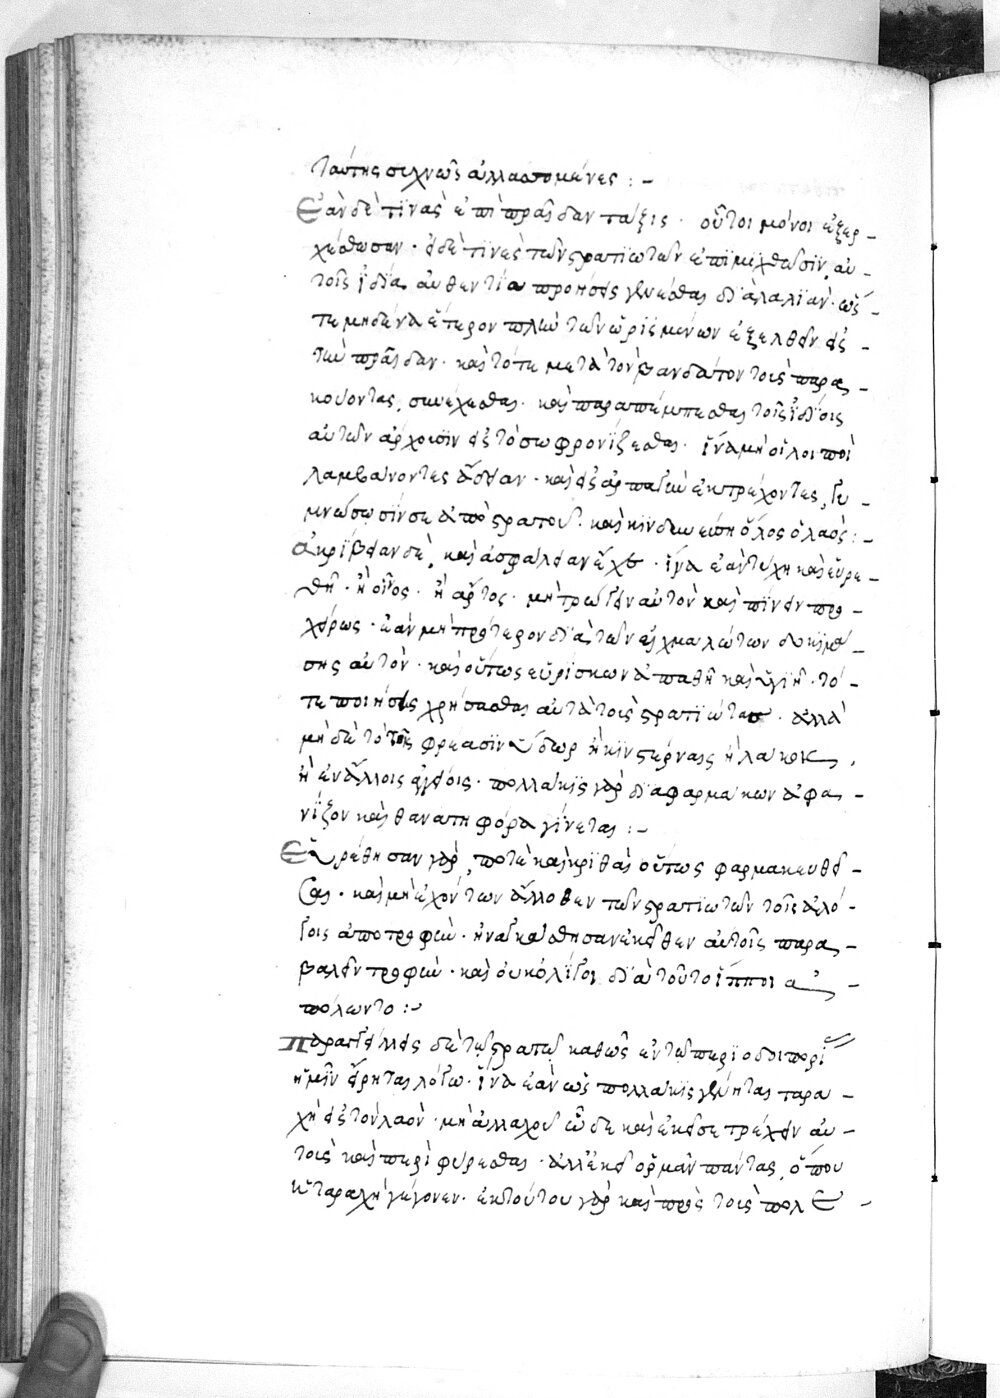 ταύτης συχνῶς ἀλλασσομένης :-
Ἐὰν δέ τινας ἐπὶ πραῖδαν τάξις · οὗτοι μόνοι ἐξερ-
χέσθωσαν · εἰ δέ τινες τῶν στρατϊωτῶν ἐπϊμϊχθῶσϊν αὐ-
τοῖς ἰδία αὐθεντία προήσεις γενέσθαι δϊαλαλϊὰν · ὥσ-
τε μηδένα ἕτερον πλὴν τῶν ὡρϊσμένων ἐξελθεῖν εἰς
τὴν πραῖδαν · καὶ τότε μετὰ τὸν βανδάτον τοὺς παρα-
κούοντας, συνέχεσθαι · καὶ παραπέμπεσθαι τοῖς ἰδϊοις
αὐτῶν ἄρχουσϊν εἰς τὸ σωφρονΐζεσθαι · ἵνα μὴ οἱ λοιποὶ
λαμβάνοντες ἄδειαν · καὶ εἰς ἁρπαγὴν ἐκτρέχοντες, γυ-
μνώσωσϊν σε ἀπὸ στρατοῦ · καὶ κϊνδυνεύση ὅλος ὁ λαός :-
ἀκρϊβειαν δὲ, καὶ ἀσφάλειαν ἔχε · ἵνα ἐὰν τύχη καὶ εὑρε-
θῆ · ἢ οἶνος · ἢ ἄρτος · μὴ τρώγειν αὐτὸν καὶ πΐνειν προ-
χείρως · ἐὰν μὴ πρότερον δϊὰ τῶν αἰχμαλώτων δοκϊμά-
σης αὐτὸν · καὶ οὕτως εὑρΐσκων ἀπαθῆ καὶ ὑγϊῆ · τό-
τε ποιήσεις χρήσασθαι αὐτὰ τοὺς στρατϊώτας · ἀλλὰ
μὴ δὲ τὸ τοῖς φρέασϊν ὕδωρ ἢ κϊνστέρναις ἢ λάκκοις,
ἢ ἐν ἄλλοις ἀγγείοις · πολλάκϊς γὰρ δϊὰ φαρμάκων ἀφα-
νΐζον καὶ θανατηφόρα γΐνεται :-
Εὑρέθησαν γάρ ποτε καὶ κρϊθαὶ οὕτως φαρμακευθεῖ-
σαι · καὶ μὴ ἐχόντων ἄλλοθεν τῶν στρατϊωτῶν τοῖς ἀλό-
γοις ἀποτροφὴν · ἠναγκάσθησαν ἐκεῖθεν αὐτοῖς παρα-
βαλεῖν τροφὴν · καὶ οὐκ ὀλΐγοι δϊὰ τοῦτο ἵπποι ἀ-
πόλωντο :-
παραγγείλεις δὲ τῷ στρατῷ καθὼς ἐν τῷ περϊ ὁδοιπορϊ
ἡμῖν εἴρηται λόγω · ἵνα ἐὰν ὡς πολλάκϊς γένηται ταρα-
χὴ εἰς τὸν λαόν · μὴ ἀλλαχοῦ ὧδε καὶ ἐκεῖσε τρέχειν αὐ-
τοὺς καὶ περὶφύρεσθαι · ἀλλ' ἐκεῖ ὁρμᾶν πάντας, ὅπου
ἡ ταραχὴ γέγονεν · ἐκ τούτου γὰρ καὶ πρὸς τοὺς πολε-